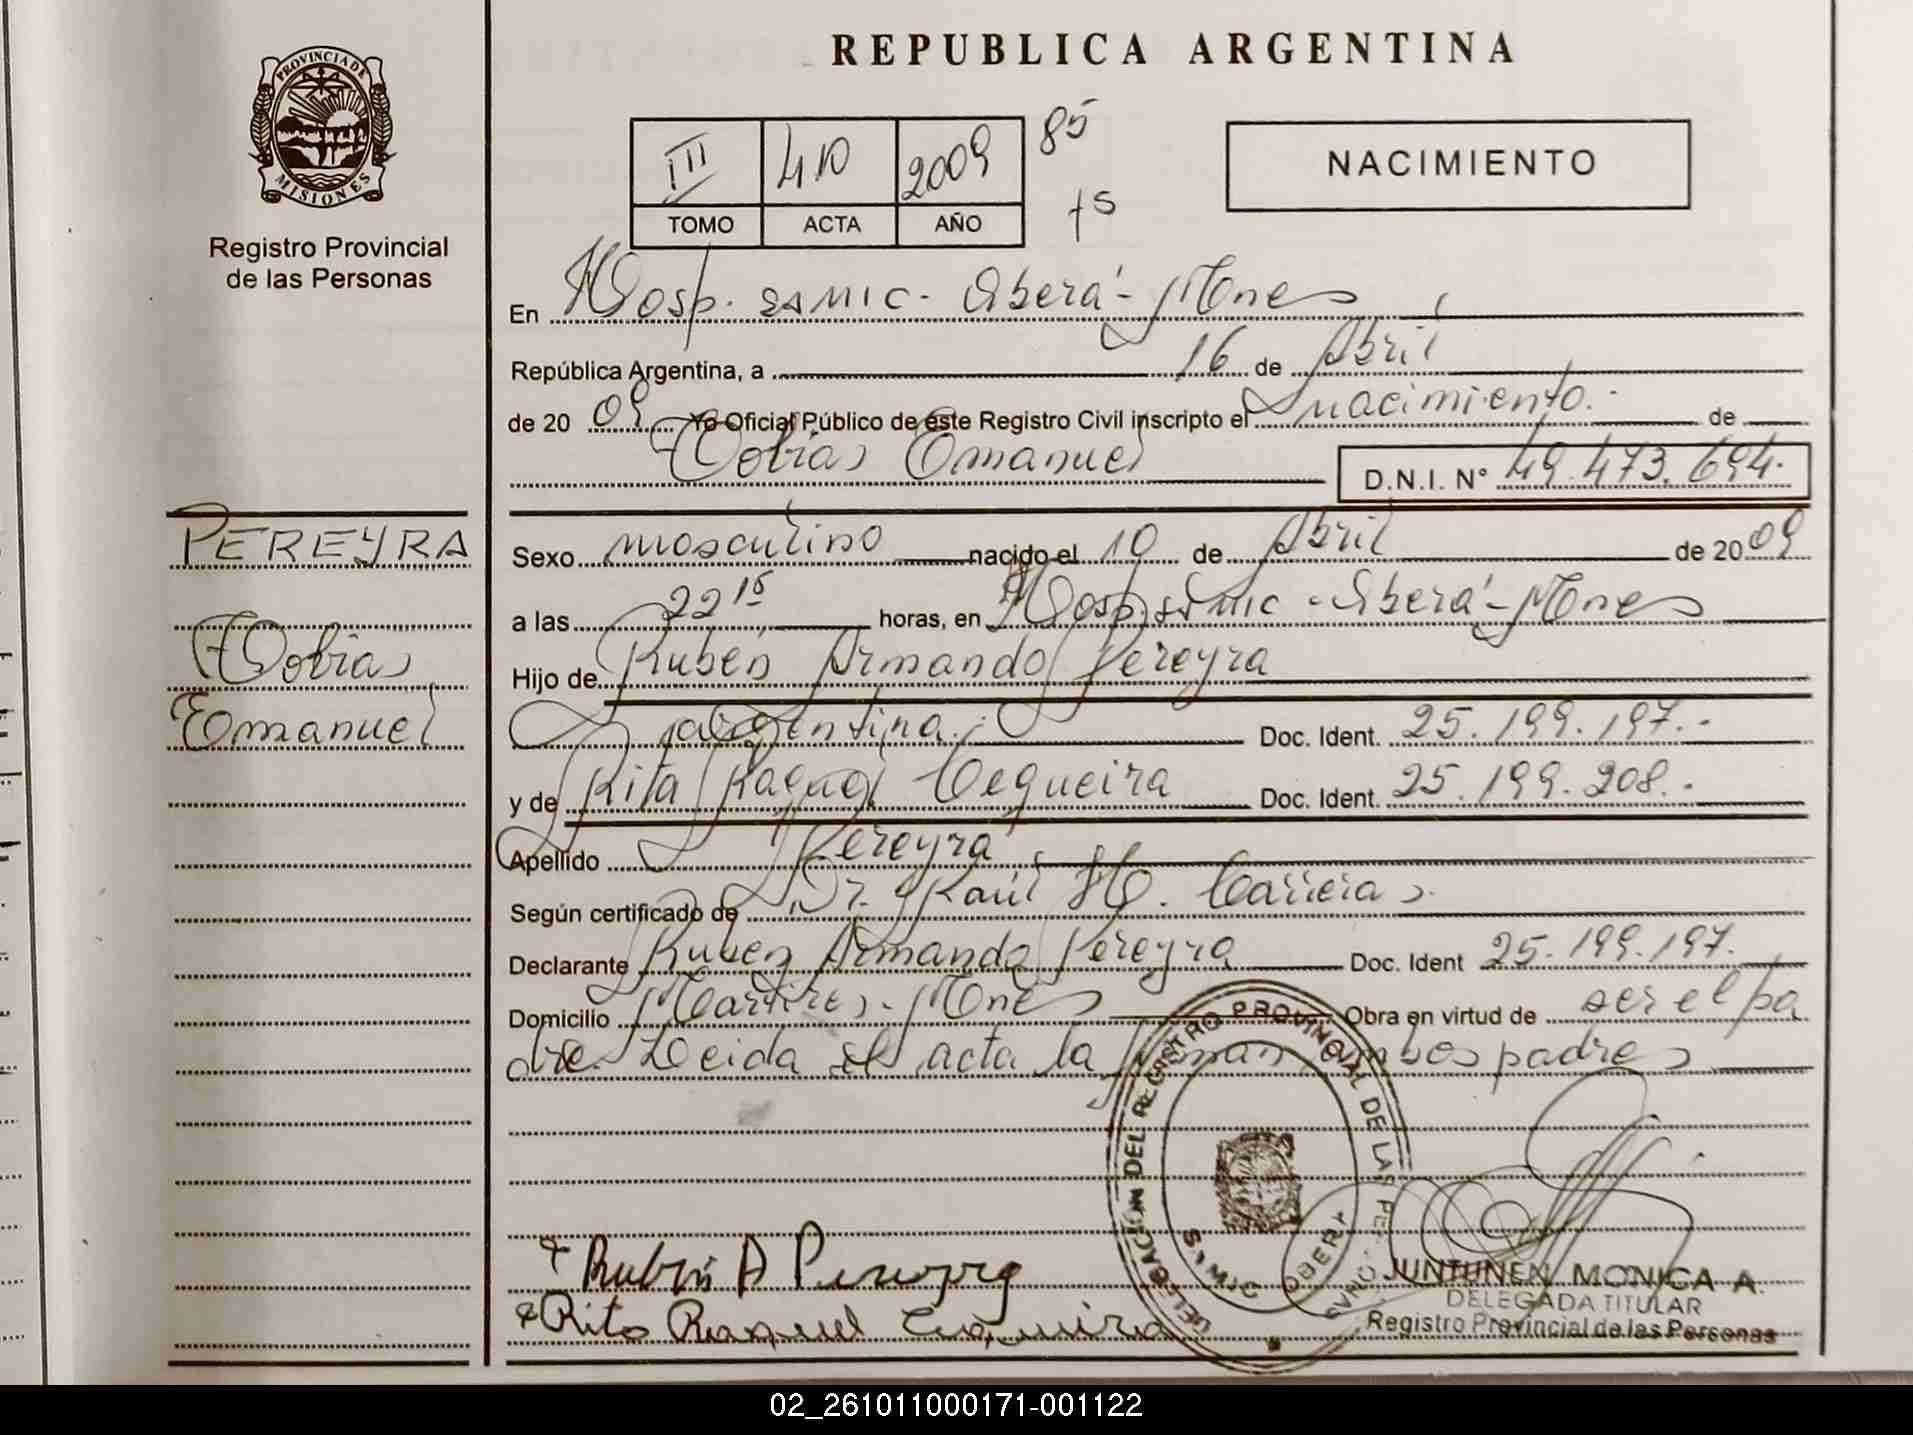 REPUBLICA ARGENTINA
PROVINCIA DE MISIONES
Registro Provincial
de las Personas
III 410 2009 85
TOMO ACTA AÑO
NACIMIENTO
En Hosp. SAMIC - Oberá - Mnes
República Argentina, a 16 de Abril
de 20 09 Yo Oficial Público de este Registro Civil inscripto el nacimiento. de
Tobias Emanuel D.N.I. N° 49.473.694.
PEREYRA
Tobias
Emanuel
Sexo masculino nacido el 10 de Abril de 20 09
a las 22 15 horas, en Hosp. SAMIC - Oberá - Mnes
Hijo de Rubén Armando Pereyra
argentina. Doc. Ident. 25.199.197.-
y de Rita Raquel Cequeira Doc. Ident. 25.199.208.-
Apellido Pereyra
Según certificado de Dr. Raúl H. Carreras.
Declarante Ruben Armando Pereyra Doc. Ident 25.199.197.
Domicilio Martires - Mnes Obra en virtud de ser el pa
dre. Leida el acta la firman ambos padres
DELEGACION DEL REGISTRO PROVINCIAL DE LAS PERSONAS
OBERA
Rubén A Pereyra
Rita Raquel Cequeira
JUNTUNEN MONICA A.
DELEGADA TITULAR
Registro Provincial de las Personas
02_261011000171-001122